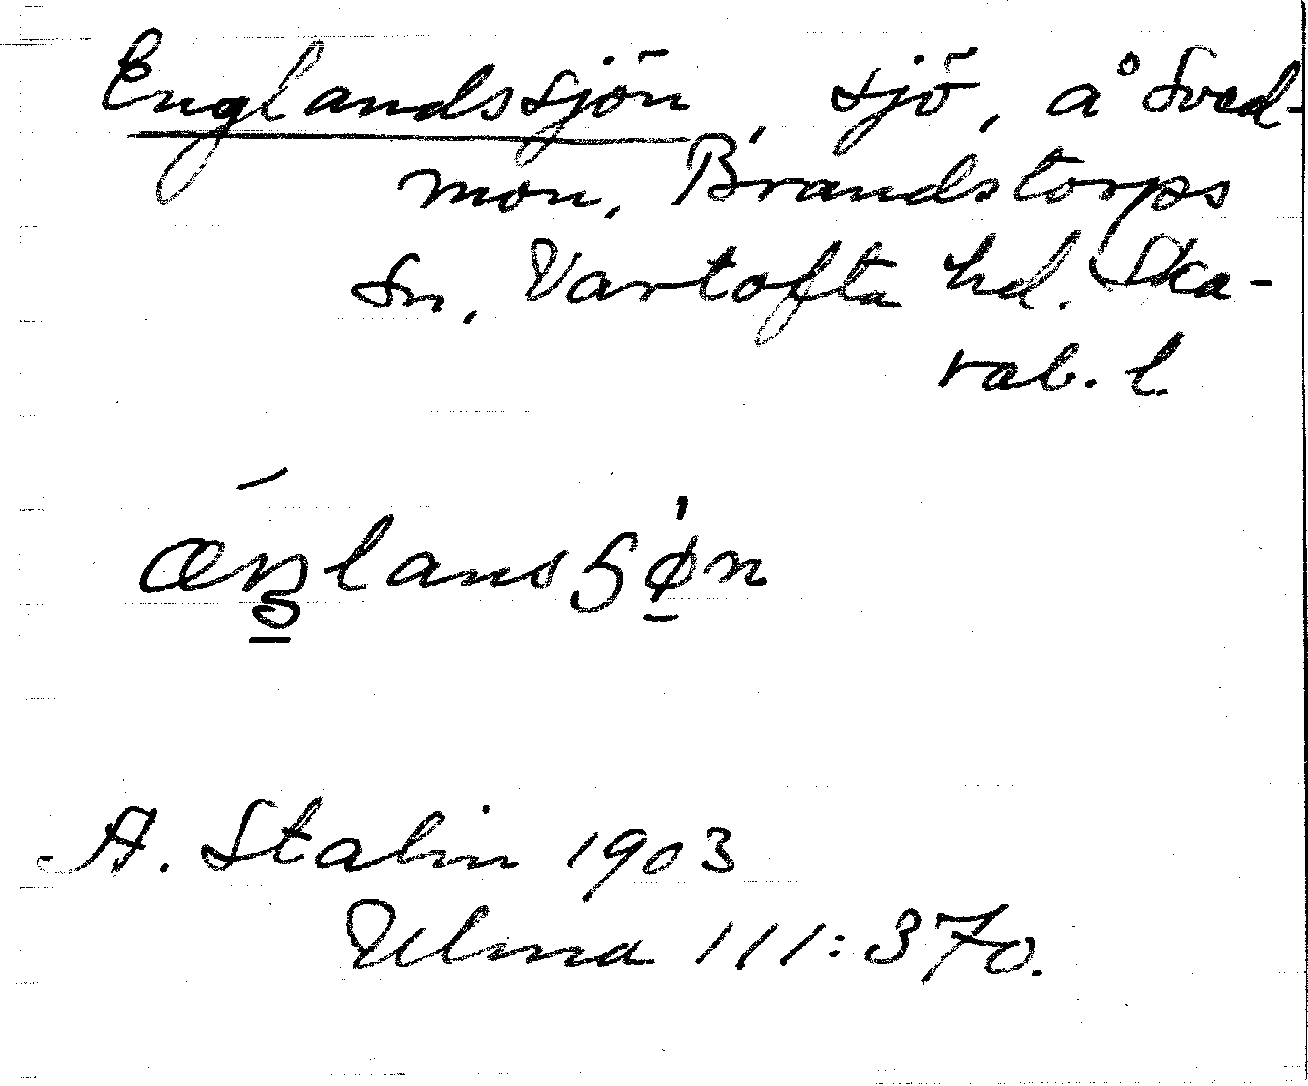 Englandssjön, sjö, å Sved-
mon, Brandstorps
sn, Vartofta hd. Ska-
rab. l.
A. Stalin 1903
Ulma 111:370.